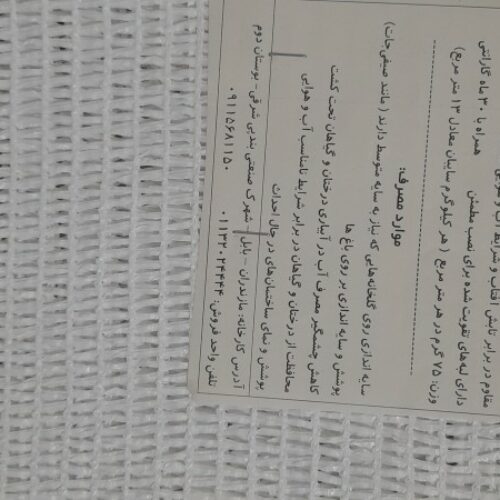 مقاوم در برابر تابش آفتاب و شرایط
همراه با ۳۰ ماه گارانتی
دارای لبه‌های تقویت شده برای نصب مطمئن
وزن: ۷۵ گرم در هر متر مربع ( هر کیلوگرم سایبان معادل ۱۳ متر مربع)
موارد مصرف:
سایه اندازی روی گلخانه‌هایی که نیاز به سایه متوسط دارند ( مانند صیفی‌جات)
پوشش و سایه اندازی بر روی باغ ها
کاهش چشمگیر مصرف آب در آبیاری درختان و گیاهان تحت کشت
محافظت از درختان و گیاهان در برابر شرایط نامناسب آب و هوایی
پوشش و نمای ساختمان‌های در حال احداث
آدرس کارخانه: مازندران - بابل - شهرک صنعتی بندپی شرقی - بوستان دوم
تلفن واحد فروش: ۰۱۱۳۲۰۲۴۴۴۴ ۰۹۱۱۵۶۸۱۱۵۰